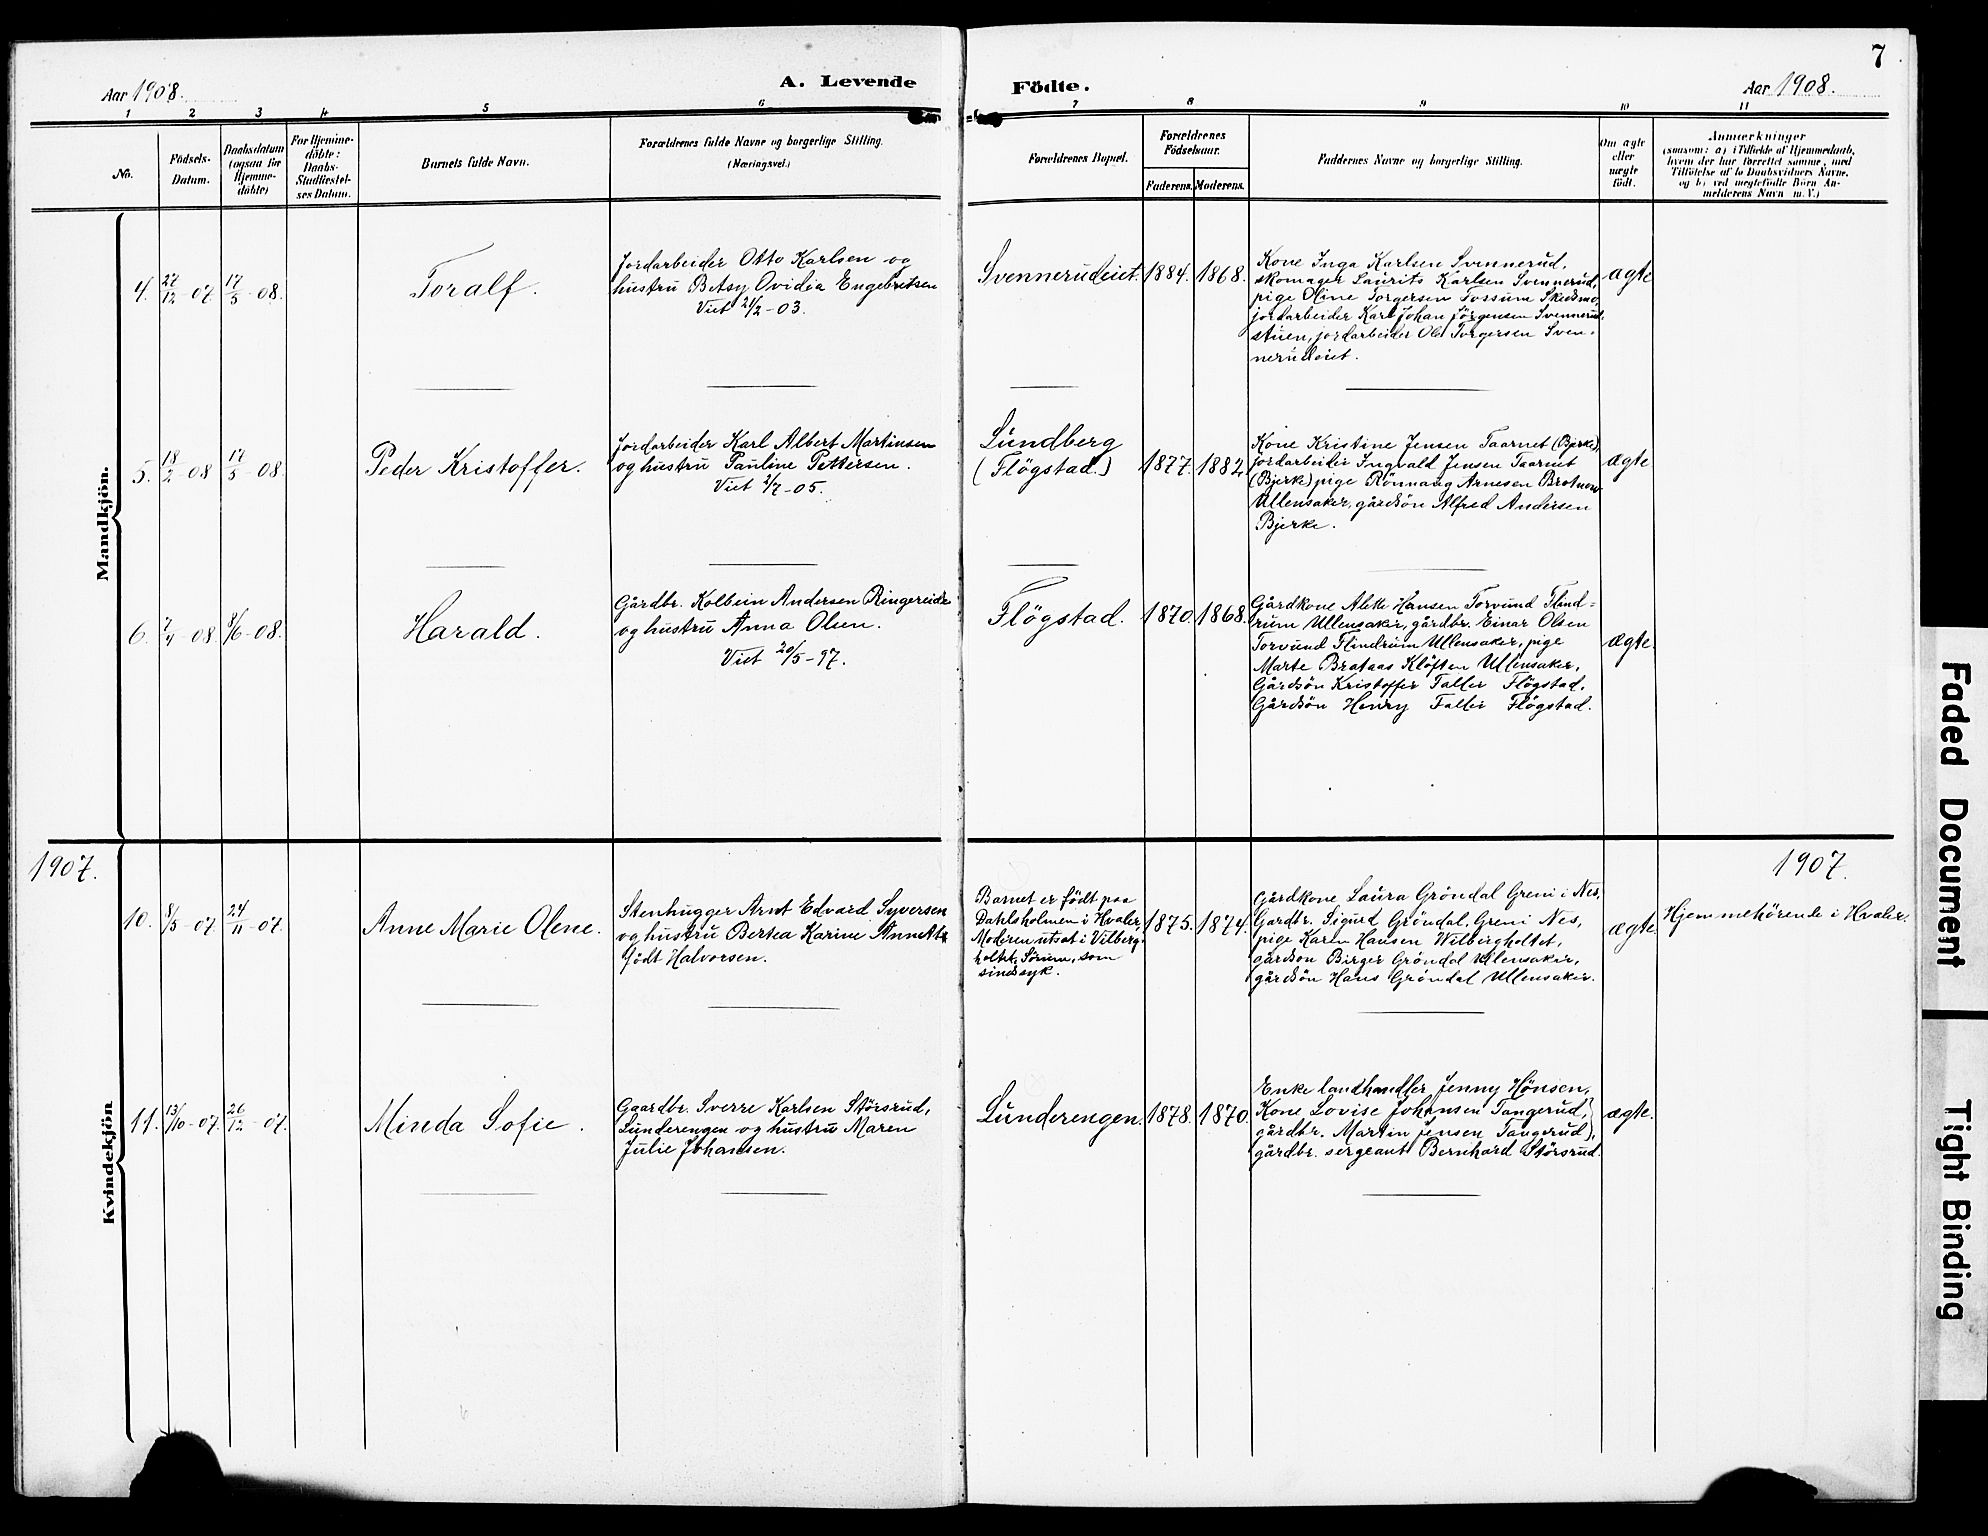 7
Aar 1908.
A. Levende
Födte.
Aar 1908.
1 2 3 4 5 6 7 8 9 10 11
No.
Födsels-
Datum.
Daabsdatum
(ogsaa for
Hjemme-
döbte)
For Hjemme-
döbte:
Daabs-
Stadfæstel-
ses Datum.
Barnets fulde Navn.
Forældrenes fulde Navne og borgerlige Stilling.
(Næringsvei.)
Forældrenes Bopæl.
Forældrenes
Födselsaar.
Faderens. Moderens.
Faddernes Navne og borgerlige Stilling.
Om ægte
eller
uægte
födt.
Anmærkninger
(saasom: a) i Tilfælde af Hjemmedaab,
hvem der har forrettet samme, med
Tilföielse af to Daabsvidners Navne.
og b) ved uægtefödte Börn An-
melderens Navn m. V.)
Mandkjön.
4.
27/12-07
17/5-08.
Toralf.
Jordarbeider Otto Karlsen og
hustru Betsy Ovidia Engebretsen
Viet 21/2-03.
Svennerudeiet.
1884. 1868.
Kone Inga Karlsen Svennerud,
skomager Laurits Karlsen Svennerud,
pige Oline Torgersen Fossum Skedsmo,
jordarbeider Karl Johan Jörgensen Svennerud-
stuen, jordarbeider Ole Torgersen Sven-
nerudeiet.
ægte
5.
18/2-08
17/5-08.
Peder Kristoffer.
Jordarbeider Karl Albert Martinsen
og hustru Pauline Pettersen.
Viet 2/7-05.
Lundberg
(Flögstad.)
1877. 1882
Kone Kristine Jensen Taarnet (Bjerke),
jordarbeider Ingvald Jensen Taarnet
(Bjerk) pige Rönnaug Arnesen
Ullensaker, gårdsön Alfred Andersen
Bjerke.
ægte
6.
7/4-08
8/6-08.
Harald.
Gårdbr. Kolbein Andersen Ringereide
og hustru Anna Olsen.
Viet 20/5-97.
Flögstad.
1870. 1868.
Gårdkone Alette Hansen Torvund Flind=
rum Ullensaker, gårdbr. Einar Olsen
Torvund Flindrum Ullensaker, pige
Marte Brataas Klöften Ullensaker,
Gårdsön Kristoffer Faller Flögstad,
Gårdsön Henry Faller Flögstad.
ægte.
1907.
1907.
Kvindekjön
10.
8/5-07.
24/11-07.
Anne Marie Olene.
Stenhugger Arnt Edvard Syversen
og hustru Bertea Karine Annette
födt Halvorsen.
Barnet er födt paa
Dahlsholmen i Hvaler,
Moderen utsat i Vilberg-
holtet, Sörum, som
sindssyk.
1875. 1874.
Gårdkone Laura Gröndal Greni i Nes,
Gardbr. Sigurd Gröndal, Greni Nes,
pige Karen Hansen Wilbergholtet,
gårdsön Birger Gröndal Ullensaker,
gårdsön Hans Gröndal Ullensaker.
ægte.
Hjemmehörende i Hvaler.
11.
13/10-07.
26/12-07.
Minda Sofie.
Gaardbr. Sverre Karlsen Störsrud,
Lunderengen og hustru Maren
Julie Johansen.
Lunderengen.
1878. 1870.
Enke landhandler Jenny Hönsen,
Kone Lovise Johansen Tangerud,
gårdbr. Martin Jensen Tangerud,
gårdbr. sergeant Bernhard Störsrud.
ægte.
Faded Document
Tight Binding